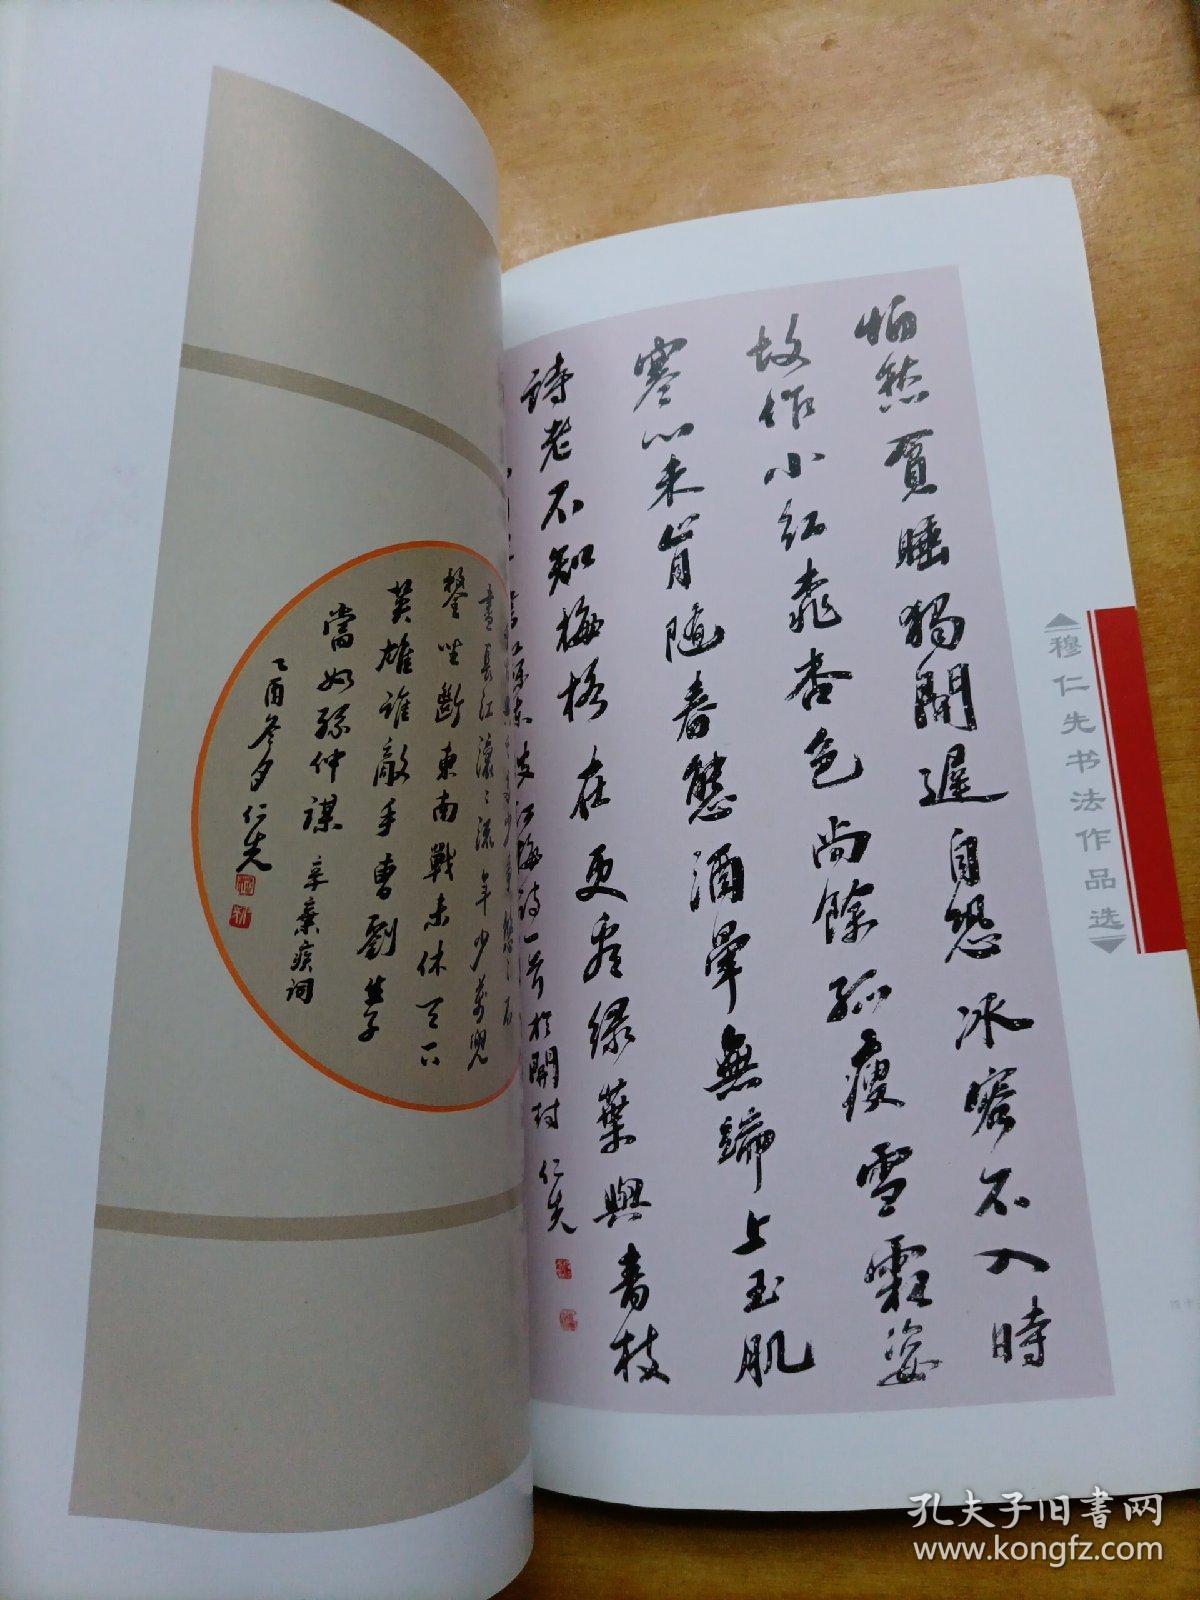 怕愁貪睡獨開遲自恐冰容不入時
故作小紅桃杏色尚餘孤瘦雪霜姿
寒心未肯隨春態酒暈無端上玉肌
詩老不知梅格在更看綠葉與青枝
書蘇東坡紅梅詩一首於開封 仁先
穆仁先书法作品选
盡長江滾々流年少萬兜
鍪坐斷東南戰未休天下
英雄誰敵手曹劉生子
當如孫仲謀 辛棄疾詞
乙酉冬夕仁先
孔夫子旧书网
www.kongfz.com